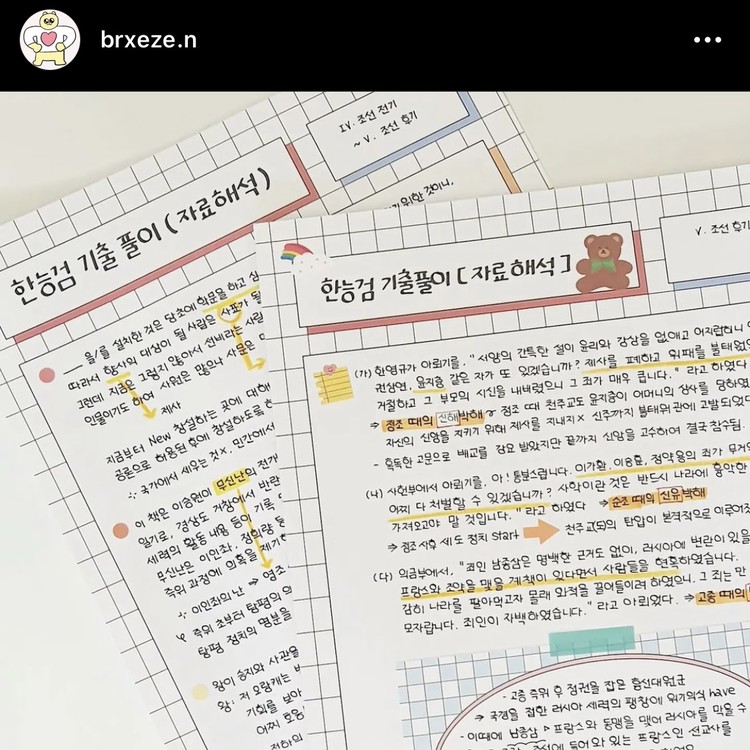 brxeze.n
IV. 조선 전기
~ V. 조선 후기
한능검 기출 풀이 (자료해석)
위한 것이니,
을/를 설치한 것은 당초에 학문을 하고
따라서 향사의 대상이 될 사람은 사표가 될
그런데 지금은 그렇지 않아서 선비라는
인물이기도 하여 사원은 많으나 사문은
제사
지금부터 New 창설하는 곳에 대해
공론으로 허용된 후에 창설하도록
∴ 국가에서 세우는 것 x, 민간에서
이 책은 이승원이 무신난의 전개
일기로, 경상도 거창에서 반란
세력의 활동 내용 등이 기록
무신난은 이인좌, 정희량 등
즉위 과정에 의혹을 제기
∴ 이인좌의 난 ⇒ 영조
즉위 초부터 탕평의
탕평 정치의 명분을
왕이 승지와 사관을
왕: 저 오랑캐는
기회를 보아
어찌 호응
V. 조선 후기
한능검 기출풀이 [자료해석]
(가) 한영규가 아뢰기를, "서양의 간특한 설이 윤리와 강상을 없애고 어지럽히니
권상연, 윤지충 같은 자가 또 있겠습니까? 제사를 폐하고 위패를 불태웠으
거절하고 그 부모의 시신을 내버렸으니 그 죄가 매우 큽니다." 라고 하였다
⇒ 정조 때의 신해박해 정조 때 천주교도 윤지충이 어머니의 상사를 당하였
자신의 신앙을 지키기 위해 제사를 지내지 x 신주까지 불태워 관에 고발되었다
- 혹독한 고문으로 배교를 강요 받았지만 끝까지 신앙을 고수하여 결국 참수됨.
(나) 사헌부에서 아뢰기를, 아! 통분스럽니다. 이가환, 이승훈, 정약용의 죄가 무거
어찌 다 처벌할 수 있겠습니까? 사학이란 것은 반드시 나라에 흉악한
가져오고야 말 것입니다." 라고 하였다 ⇒ 순조 때의 신유박해
⇒ 정조 사후 세도 정치 start 천주교(인)의 탄압이 본격적으로 이루어
(다) 의금부에서, "죄인 남종삼은 명백한 근거도 없이, 러시아에 변란이 있을
프랑스와 조약을 맺을 계책이 있다면서 사람들을 현혹하였습니다.
감히 나라를 팔아먹고자 몰래 외적을 끌어들이려 하였으니, 그 죄는 만
모자랍니다. 죄인이 자백하였습니다." 라고 아뢰었다. ⇒ 고종 때의
- 고종 즉위 후 정권을 잡은 흥선대원군
⇒ 국경을 접한 러시아 세력의 팽창에 위기의식 have
- 이때에 남종삼 ▷ 프랑스와 동맹을 맺어 러시아를 막을 수
조선에 들어와 있는 프랑스인 선교사를